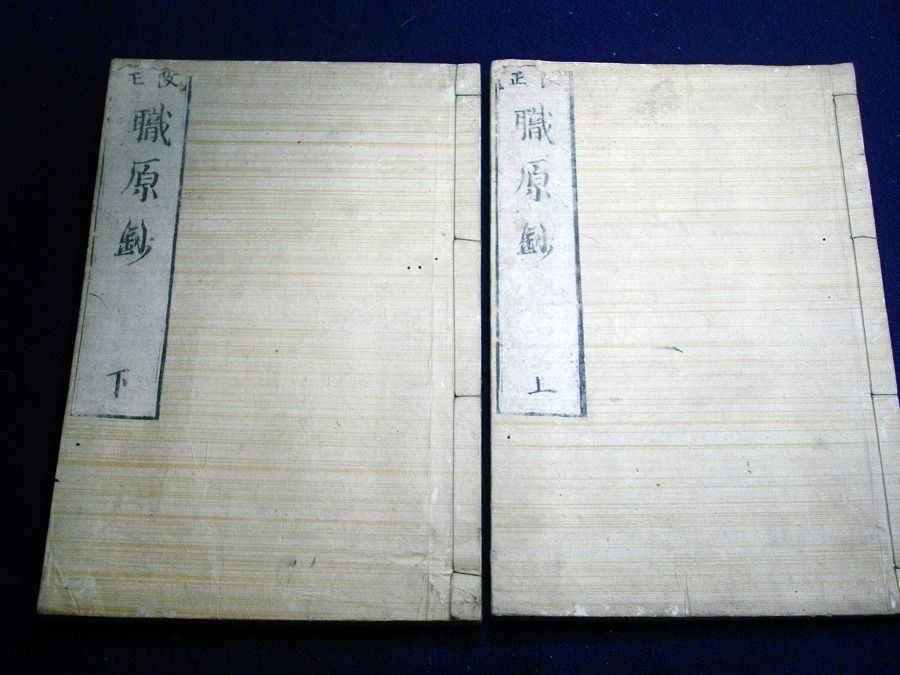 改正
職原鈔
上
改正
職原鈔
下